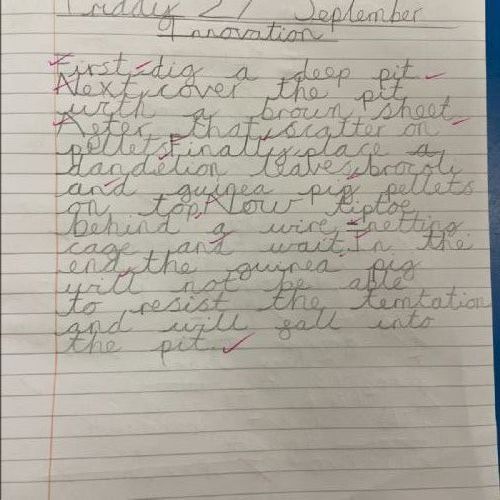 Friday 27 September
Innovation
First, dig a deep pit.
Next, cover the pit
with a brown sheet.
After that, scatter on
pellets. Finally, place a
dandelion leaves, brocoly
and guinea pig pellets
on top. Now tiptoe
behind a wire-netting
cage and wait. In the
end, the guinea pig
will not be able
to resist the temtation
and will fall into
the pit.